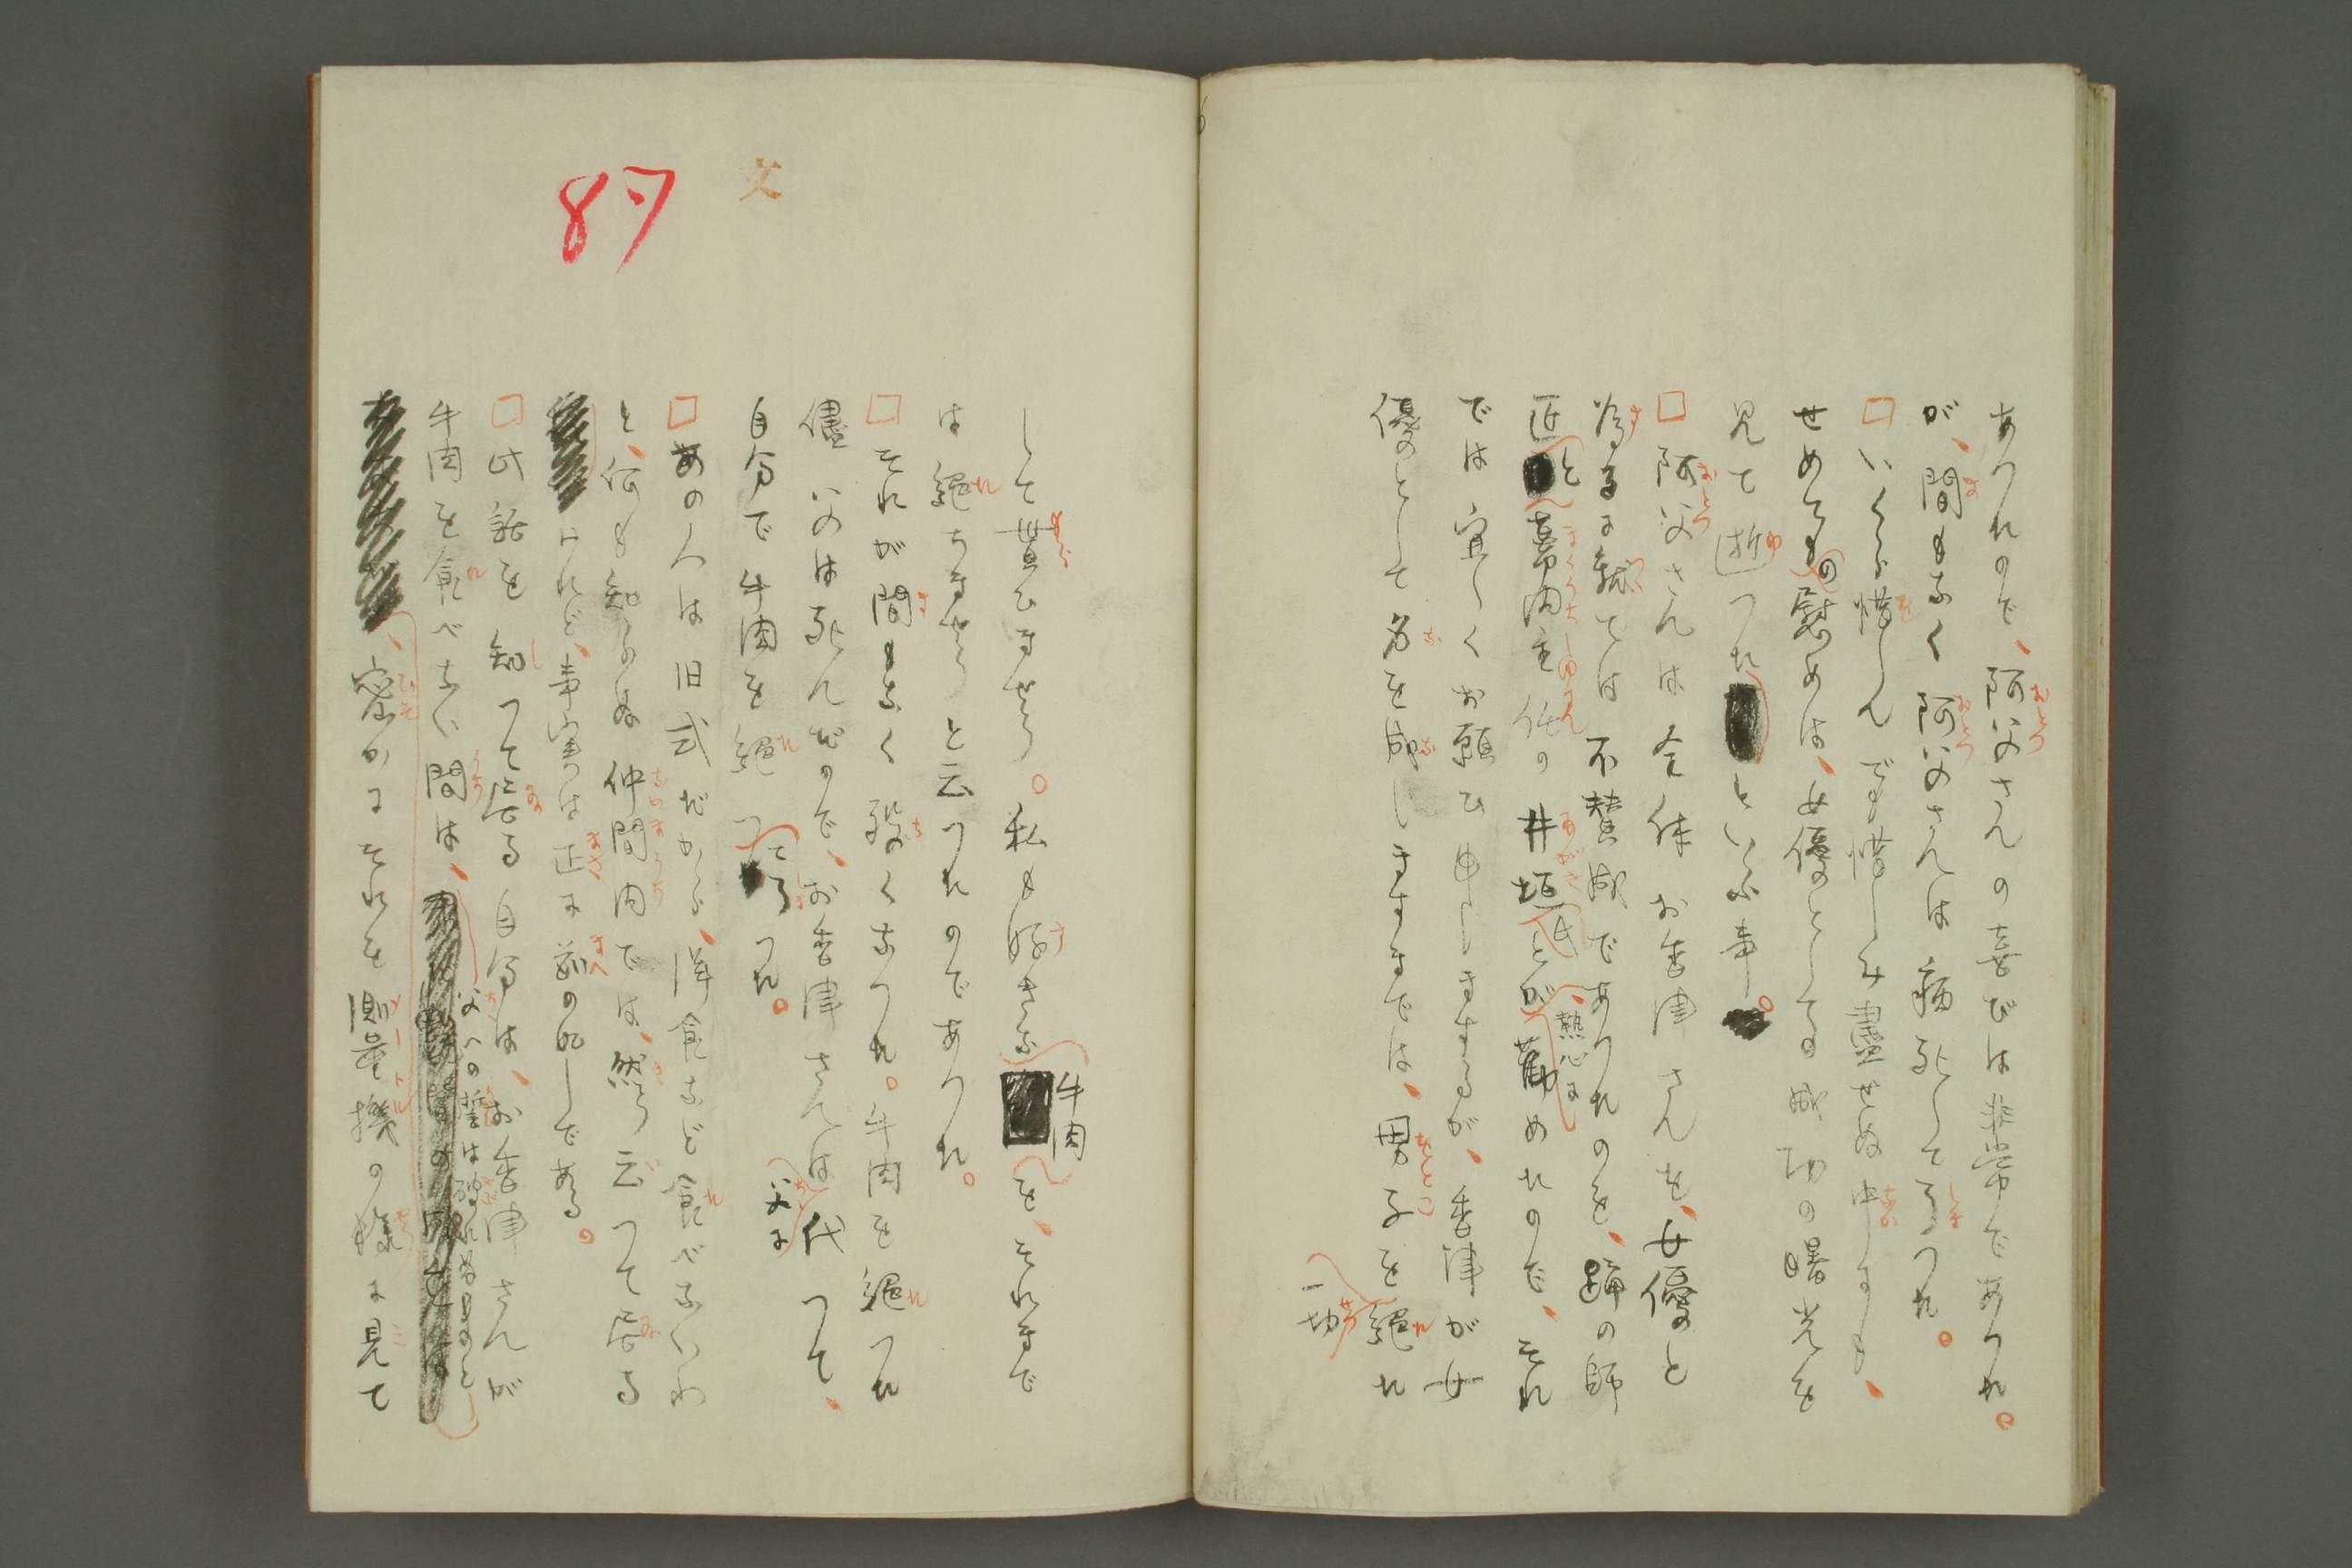 あつたので、阿父さんの喜びは非常であつた。
が、間もなく阿父さんは病死してしまつた。
□いくら惜しんでも惜しみ盡せぬ中にも、
せめてもの慰めは、女優としての成功の曙光を
見て逝つたといふ事。
□阿父さんは全体お香津さんを、女優と
為るに就ては不賛成であつたのを、踊の師
匠と幕内主任の井垣氏とが、熱心に勧めたので、それ
では宜しくお願ひ申しまするが、香津が女
優として名を成しますまでは、男子を一切絶た
して貰ひませう。私も好きな牛肉を、それまで
は絶ちませうと云つたのであつた。
□それが間もなく殁くなつた。牛肉を絶つた
儘父は死んだので、お香津さんは父に代つて、
自分で牛肉を絶つてしまつた。
□あの人は旧式だから、洋食など食べないわ
と、何も知らぬ仲間内では、然う云つて居る
けれど、事実は正に前の如しである。
□此話を知つて居る自分は、お香津さんが
牛肉を食べない間は、父への誓は破れぬものと
、密かにそれを測量機の様に見て
87
文